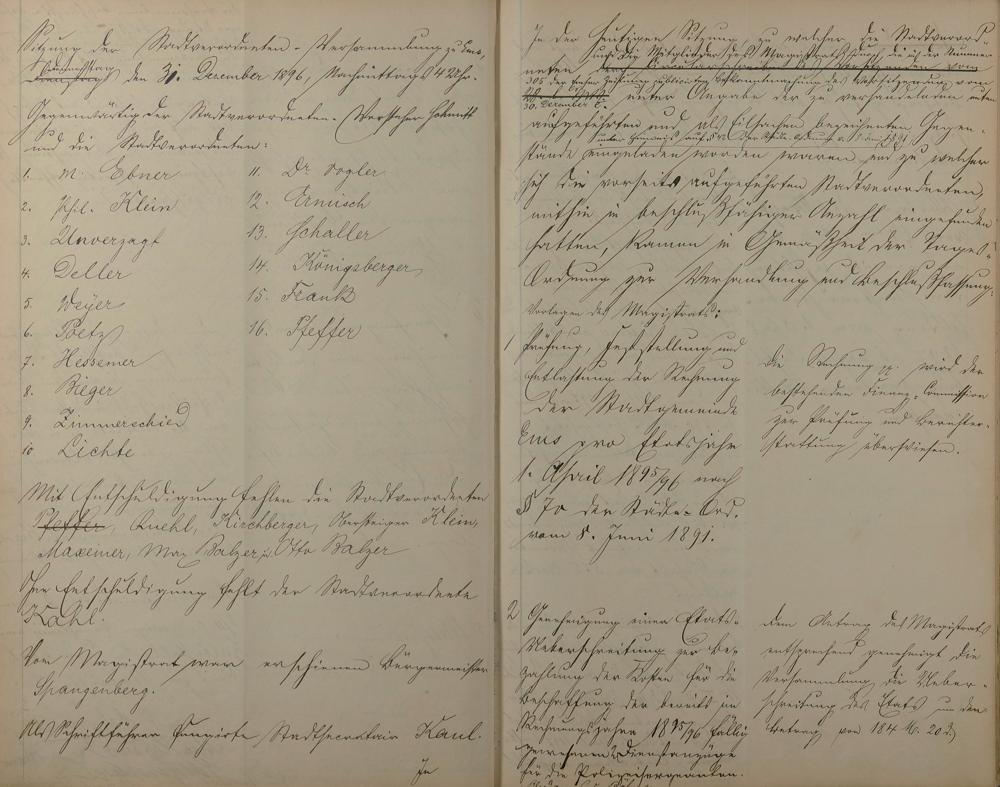 Sitzung der Stadtverordneten-Versammlung zu Ems,
Donnerstag
den 31. Dezember 1896, Nachmittags 4 Uhr.
Gegenwärtig der Stadtverordneten-Vorsteher Schmitt
und die Stadtverordneten:
1. M. Ebner
2. Phil. Klein
3. Unverzagt
4. Deller
5. Weyer
6. Poetz
7. Hessemer
8. Bieger
9. Zimmerschied
10 Lichte
11. Dr Vogler
12. Ermisch
13. Schaller
14. Königsberger
15. Frank
16. Pfeffer
Mit Entschuldigung fehlen die Stadtverordneten
Pfeffer, Ruehl, Kirchberger, Obersteiger Klein,
Maxeiner, Max Balzer, Otto Balzer
Ohne Entschuldigung fehlt der Stadtverordnete
Kahl.
Vom Magistrat war erschienen Bürgermeister
Spangenberg.
Als Schriftführer fungirte Stadtsecretair Kaul.
In
In der heutigen Sitzung, zu welcher die Stadtverord-
und die Mitglieder des Magistrats durch die in der Nummer
neten
305 der Emser Zeitung publicirte Bekanntmachung des Vorsitzenden vom
30. Dezember unter Angabe der zu verhandelnden unten
aufgeführten und als Eilsachen bezeichneten Gegen-
unter Hinweis auf § der Städte-Ordnung v. 8 Juni 1891
stände eingeladen worden waren und zu welcher
sich die vorseits aufgeführten Stadtverordneten,
mithin in beschlußfähiger Anzahl eingefunden
hatten, kamen in Gemäßheit der Tages-
Ordnung zur Verhandlung und Beschlußfassung:
Vorlagen des Magistrats:
1 Prüfung, Feststellung und
Entlastung der Rechnung
der Stadtgemeinde
Ems pro Etatsjahr
1. April 1895/96 nach
§ 70 der Städte-Ord.
vom 8. Juni 1891.
Die Rechnung pp. wird der
bestehenden Finanz-Commission
zur Prüfung und Berichter-
stattung überwiesen.
2 Genehmigung einer Etats-
Ueberschreitung zur Be-
zahlung der Kosten für die
Beschaffung der bereits im
Rechnungsjahre 1895/96 fällig
gewesenen Dienstanzüge
für die Polizeisergeanten.
Dem Antrag des Magistrats
entsprechend genehmigt die
Versammlung die Ueber-
schreitung des Etats um den
Betrag von 184 M. 20 d.